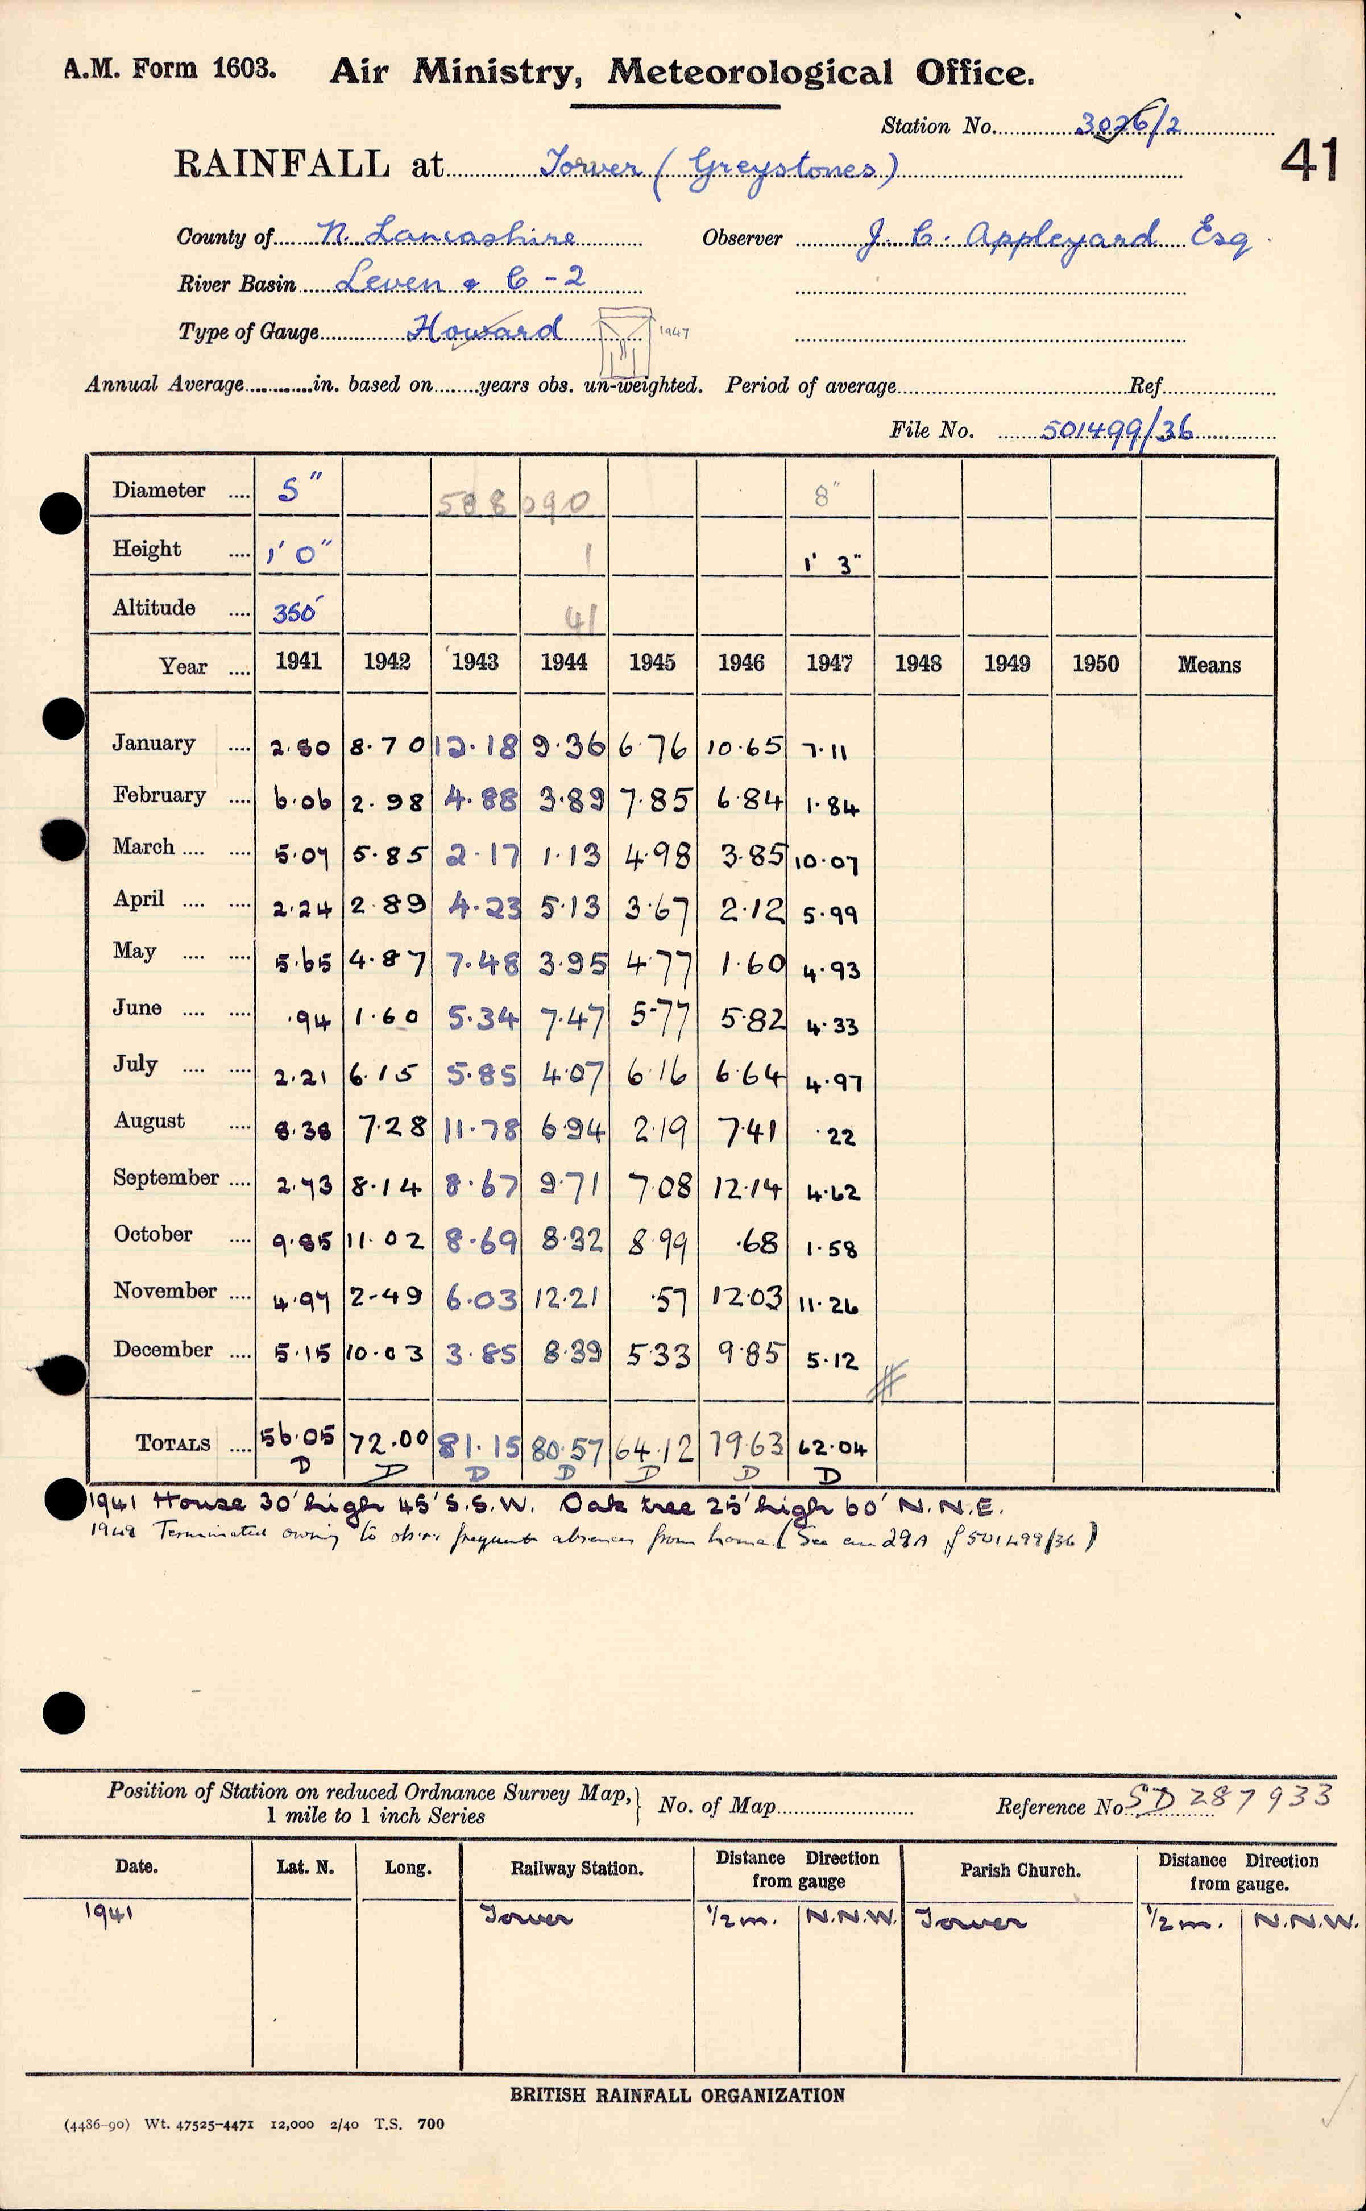 A.M. Form 1603. Air Ministry, Meteorological Office.
Station No. 3026/2
41
RAINFALL at Torver (Greystones)
County of N. Lancashire Observer J. C. Appleyard Esq
River Basin Leven & C - 2
Type of Gauge Howard 1947
Annual Average in. based on years obs. un-weighted. Period of average Ref.
File No. 501499/36
Diameter .... 5" 588090 8"
Height .... 1' 0" 1 1' 3"
Altitude .... 350' 41
Year .... 1941 1942 1943 1944 1945 1946 1947 1948 1949 1950 Means
January .... 2.80 8.70 12.18 9.36 6.76 10.65 7.11
February .... 6.06 2.98 4.88 3.89 7.85 6.84 1.84
March .... .... 5.07 5.85 2.17 1.13 4.98 3.85 10.07
April .... .... 2.24 2.89 4.23 5.13 3.67 2.12 5.99
May .... .... 5.65 4.87 7.48 3.95 4.77 1.60 4.93
June .... .... .94 1.60 5.34 7.47 5.77 5.82 4.33
July .... .... 2.21 6.15 5.85 4.07 6.16 6.64 4.97
August .... 8.38 7.28 11.78 6.94 2.19 7.41 .22
September .... 2.73 8.14 8.67 9.71 7.08 12.14 4.62
October .... 9.85 11.02 8.69 8.32 8.99 .68 1.58
November .... 4.97 2.49 6.03 12.21 .57 12.03 11.26
December .... 5.15 10.03 3.85 8.39 5.33 9.85 5.12
TOTALS .... 56.05 72.00 81.15 80.57 64.12 79.63 62.04
D D D D D D D
1941 House 30' high 45' S.S.W. Oak tree 25' high 60' N.N.E.
1948 Terminated owing to obs. frequent absences from home (See 29A f 501499/36)
Position of Station on reduced Ordnance Survey Map, } No. of Map Reference No. SD 287933
1 mile to 1 inch Series
Date. Lat. N. Long. Railway Station. Distance Direction from gauge Parish Church. Distance Direction from gauge.
1941 Torver 1/2 m. N.N.W. Torver 1/2 m. N.N.W.
BRITISH RAINFALL ORGANIZATION
(4486-90) Wt. 47525-4471 12,000 2/40 T.S. 700